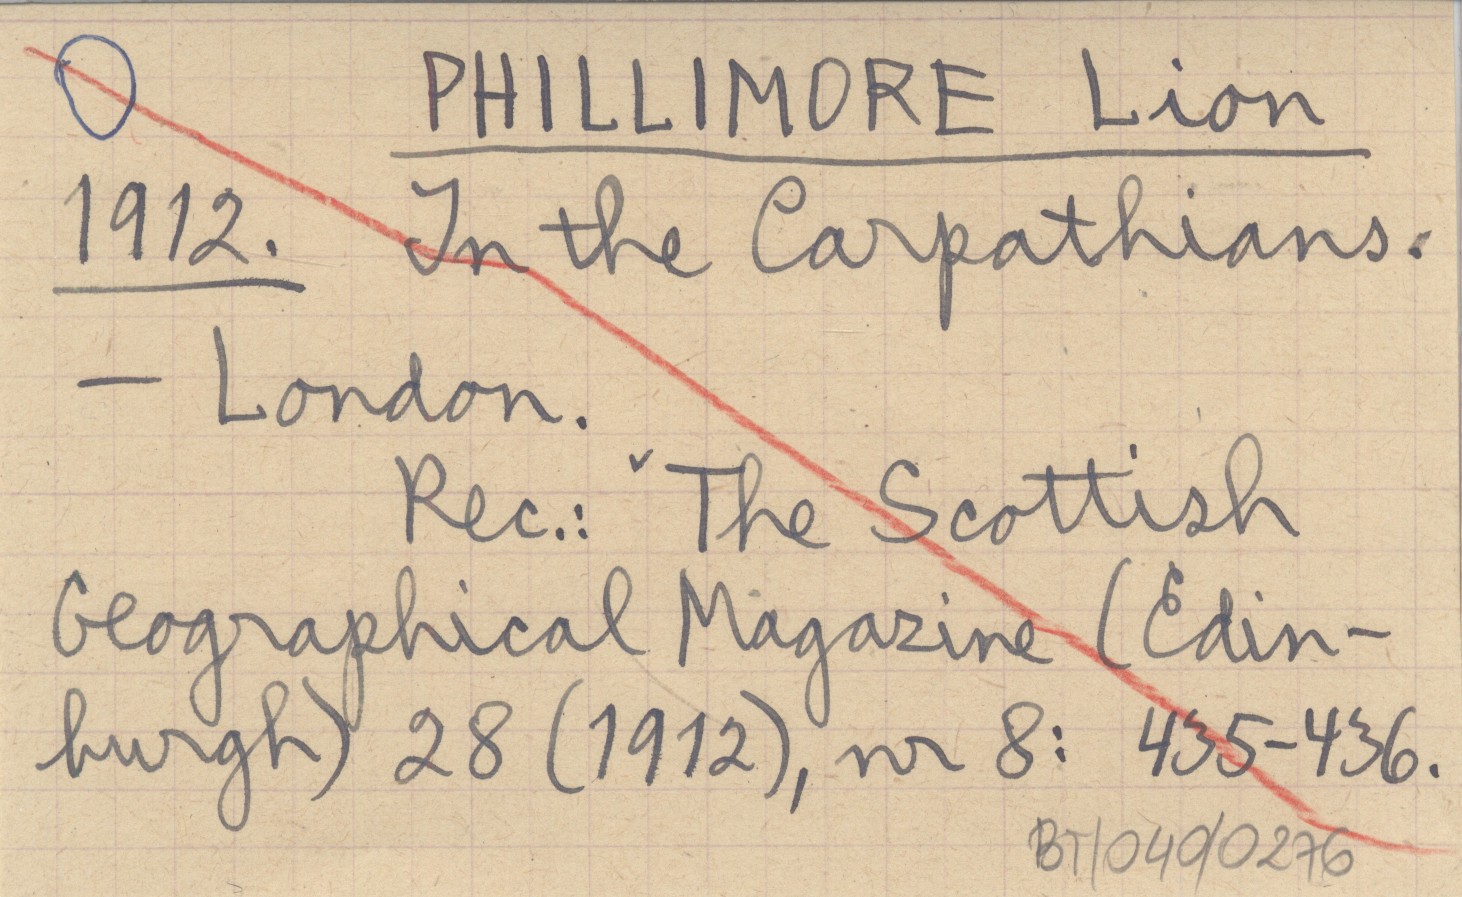 PHILLIMORE Lion
1912. In the Carpathians.
— London.
Rec.: ˇThe Scottish
Geographical Magazine (Edin-
burgh) 28 (1912), nr 8: 435-436.
BT/040/0276